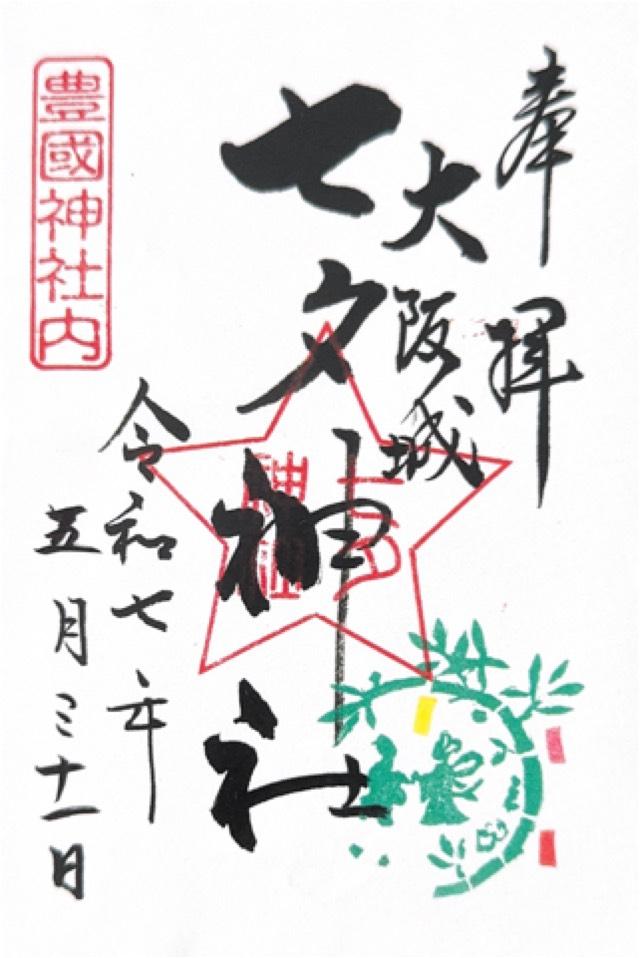 奉拝
大阪城
七夕神社
七夕
神社
令和七年
五月三十一日
豊國神社内